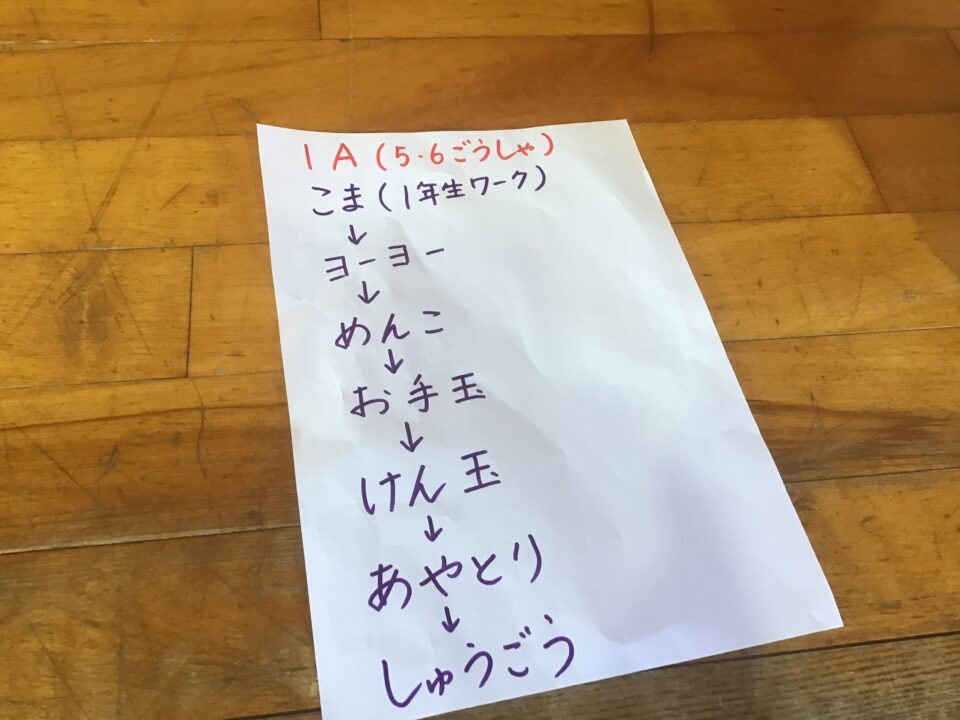 1A(5・6ごうしゃ)
こま(1年生ワーク)
↓
ヨーヨー
↓
めんこ
↓
お手玉
↓
けん玉
↓
あやとり
↓
しゅうごう